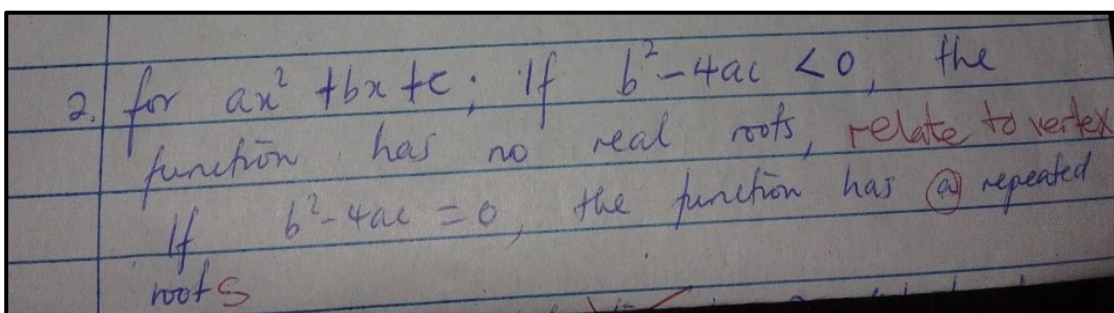 2. for ax² +bx +c ; If b²-4ac <0, the
function has no real roots, relate to vertex
If b²-4ac =0, the function has a repeated
roots